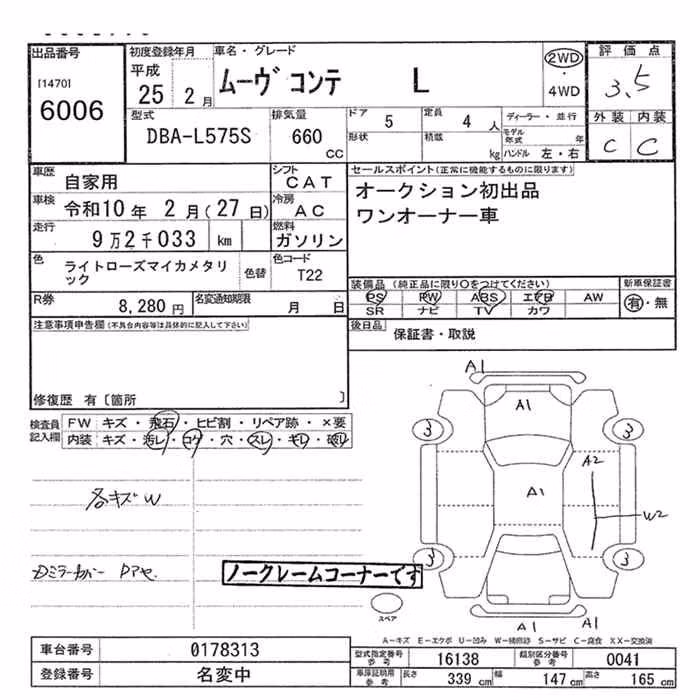 出品番号 初度登録年月 車名・グレード 評価点
[1470] 平成 ムーヴ コンテ L 2WD ・ 4WD 3.5
6006 25 2月
型式 排気量 ドア 5 定員 4人 ディーラー・並行 外装 内装
DBA-L575S 660 cc 形状 積載 kg モデル年式 年 C C
ハンドル 左・右
車歴 自家用 シフト CAT セールスポイント(正常に機能するものに限ります)
車検 令和10年 2月(27日) 冷房 AC オークション初出品
走行 9万2千033 km 燃料 ガソリン ワンオーナー車
色 ライトローズマイカメタリック 色替 色コード T22
装備品(純正品に限り○をつけてください) 新車保証書
R券 8,280円 名変通知期限 月 日 PS PW ABS エアB AW 有・無
SR ナビ TV カワ
注意事項申告欄(不具合内容等は具体的に記入して下さい) 後日品 保証書・取説
修復歴 有〔箇所 〕
検査員記入欄 FW キズ・飛石・ヒビ割・リペア跡・×要
内装 キズ・汚レ・コゲ・穴・スレ・キレ・破レ
A1
A1
3 3
A2
A1
W2
各キズW
3 3
ノークレームコーナーです
スペア
A1 A1
A-キズ E-エクボ U-凹み W-補修跡 S-サビ C-腐食 XX-交換済
車台番号 0178313 型式指定番号 参考 16138 類別区分番号 参考 0041
登録番号 名変中 車庫証明用 参考 長さ 339 cm 幅 147 cm 高さ 165 cm